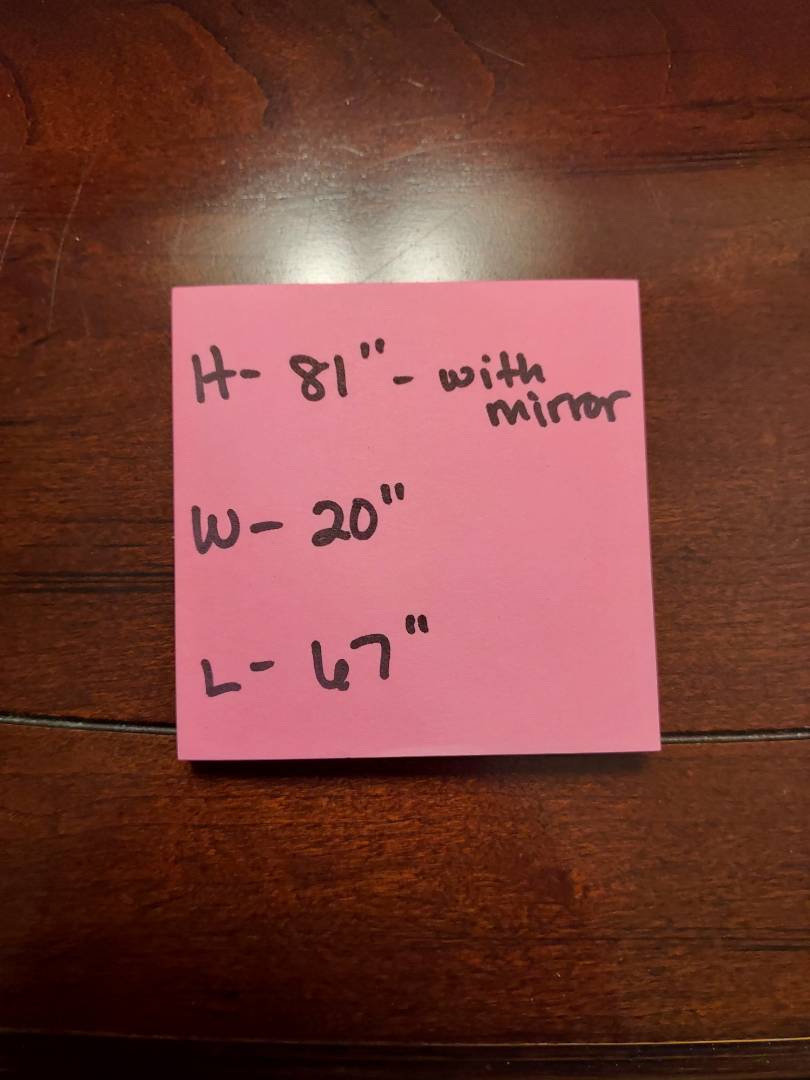 H- 81"- with
mirror
W- 20"
L- 67"